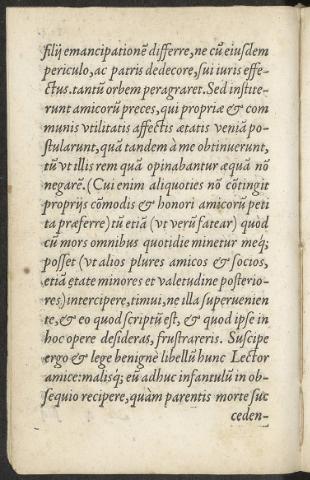 filij emancipationē differre, ne cū eiusdem
periculo, ac patris dedecore, sui iuris effe-
ctus.tantū orbem peragraret. Sed institē-
runt amicorū preces, qui propriæ & com
munis vtilitatis affectis ætatis veniā po-
stularunt, quā tandem à me obtinuerunt,
tū vt illis rem quā opinabantur æquā nō
negarē. (Cui enim aliquoties nō cōtingit
proprijs cōmodis & honori amicorū peti
ta præferre) tū etiā (vt verū fatear) quod
cū mors omnibus quotidie minetur meq;
posset (vt alios plures amicos & socios,
etiā etate minores et valetudine posterio-
res) intercipere, timui, ne illa superuenien
te, & eo quod scriptū est, & quod ipse in
hoc opere desideras, frustrareris. Suscipe
ergo & lege benignè libellū hunc Lector
amice: malisq́; eū adhuc infantulū in ob-
sequio recipere, quàm parentis morte suc
ceden-